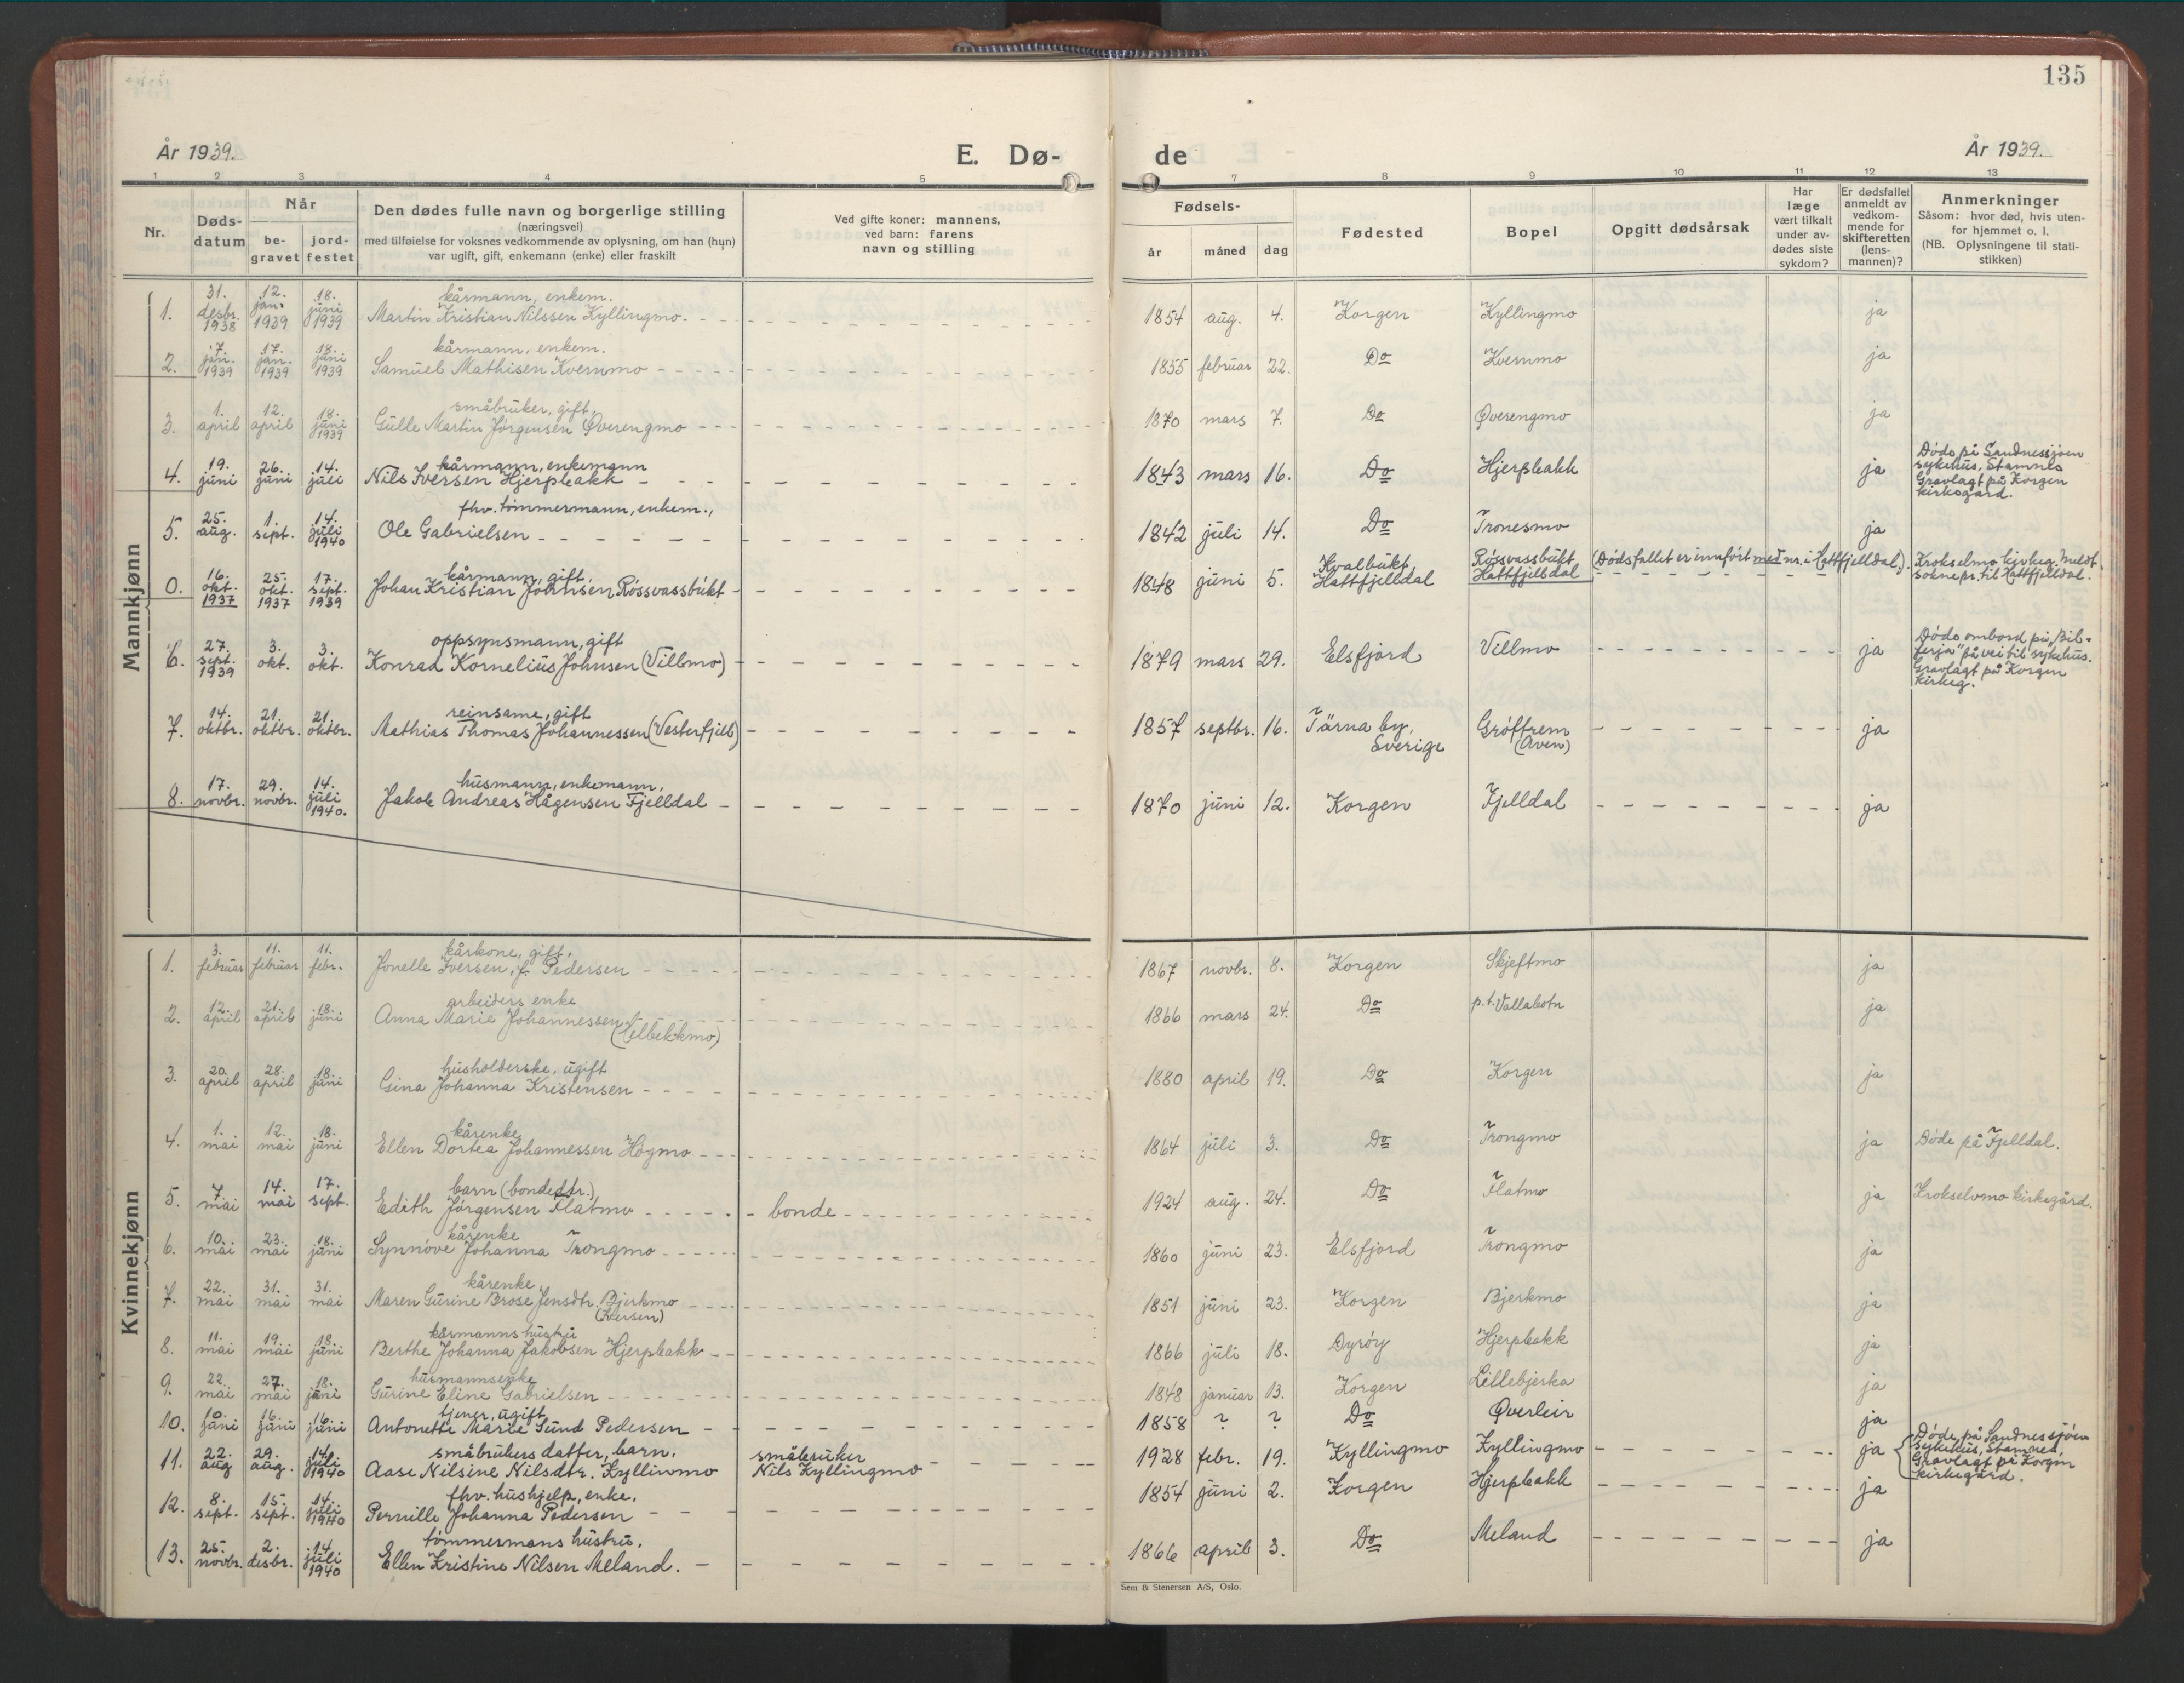 135
År 1939.
E. Dø-
de
År 1939.
1 2 3 4 5 7 8 9 10 11 12 13
Nr.
Døds-
datum
Når
be-
gravet
jord-
festet
Den dødes fulle navn og borgerlige stilling
(næringsvei)
med tilføielse for voksnes vedkommende av oplysning, om han (hun)
var ugift, gift, enkemann (enke) eller fraskilt
Ved gifte koner: mannens,
ved barn: farens
navn og stilling
Fødsels-
år måned dag
Fødested
Bopel
Opgitt dødsårsak
Har
læge
vært tilkalt
under av-
dødes siste
sykdom?
Er dødsfallet
anmeldt av
vedkom-
mende for
skifteretten
(lens-
mannen)?
Anmerkninger
Såsom: hvor død, hvis uten-
for hjemmet o. l.
(NB. Oplysningene til stati-
stikken)
Mannkjønn
1. 31. desbr. 1938 12. jan. 1939 18. juni 1939 kårmann, enkem.
Martin Kristian Nilssen Kyllingmo. 1854 aug. 4. Korgen Kyllingmo ja
2. 7. jan. 1939 17. jan. 1939 18. juni 1939 kårmann, enkem.
Samuel Mathisen Kvernmo 1855 februar 22. Do Kvernmo ja
3. 1. april 12. april 18. juni 1939 småbruker, gift.
Gulle Martin Jørgensen Øverengmo 1870 mars 7. Do Øverengmo ja
4. 19. juni 26. juni 14. juli kårmann, enkemann
Nils Iversen Hjerpbakk 1843 mars 16. Do Hjerpbakk ja
Døds på Sandnessjøen
sykehus, Stamnes
Gravlagt på Korgen
kirkegård.
5. 25. aug. 1. sept. 14. juli 1940 fhv. tømmermann, enkem.,
Ole Gabrielsen 1842 juli 14. Do Tronesmo ja
0. 16. okt. 1937 25. okt. 1937 17. sept. 1939 kårmann, gift,
Johan Kristian Johnsen Røssvassbukt 1848 juni 5. Kvalbukt, Hattfjelldal Røssvassbukt Hattfjelldal (Dødsfallet er innført med nr. i Hattfjelldal).
Krokselmo kirkeg. meldt
soknepr. til Hattfjelldal.
6. 27. sept. 1939 3. okt. 3. okt. oppsynsmann, gift
Konrad Kornelius Johnsen (Villmo) 1879 mars 29. Elsfjord Villmo ja
Døds ombord på "Bil-
ferja" på vei til sykehus.
Gravlagt på Korgen
kirkeg.
7. 14. oktbr. 21. oktbr. 21. oktbr. reinsame, gift
Mathias Thomas Johannessen (Vesterfjell) 1857 septbr. 16. Tärna by, Sverige Grøftrem (Aven) ja
8. 17. novbr. 29. novbr. 14. juli 1940. husmann, enkemann,
Jakob Andreas Hågensen Fjelldal 1870 juni 12. Korgen Fjelldal ja
Kvinnekjønn
1. 3. februar 11. februar 11. febr. kårkone, gift,
Jonelle Iversen, f. Pedersen 1867 novbr. 8. Korgen Skjeftmo ja
2. 12. april 21. april 18. juni arbeiders enke
Anna Marie Johannessen 1866 mars 24. Do p.t. Vallabotn ja
3. 20. april 28. april 18. juni husholderske, ugift
Gina Johanna Kristensen 1880 april 19. Do Korgen ja
4. 1. mai 12. mai 18. juni kårenke
Ellen Dortea Johannessen Høgmo 1864 juli 3. Do Trongmo ja Døde på Fjelldal.
5. 7. mai 14. mai 17. sept. barn (bondedtr.)
Edith Jørgensen Flatmo bonde 1924 aug. 24. Do Flatmo ja Krokselvmo kirkegård.
6. 10. mai 23. mai 18. juni kårenke
Synnøve Johanna Trongmo 1860 juni 23. Elsfjord Trongmo ja
7. 22. mai 31. mai 31. mai kårenke
Maren Gurine Brose Jensdtr. Bjerkmo
(Iversen) 1851 juni 23. Korgen Bjerkmo ja
8. 11. mai 19. mai 18. juni kårmanns hustru
Berthe Johanna Jakobsen Hjerpbakk 1866 juli 18. Dyrøy Hjerpbakk ja
9. 22. mai 27. mai 18. juni husmannsenke
Gurine Eline Gabrielsen 1848 januar 13. Korgen Lillebjerka ja
10. 10. juni 16. juni 16. juni tjener, ugift
Antonette Marie Sund Pedersen 1858 ? ? Do Øverleir ja
11. 22. aug 29. aug. 14. juli 1940 småbrukers datter, barn.
Aase Nilsine Nilsdtr. Kyllinmo småbruker Nils Kyllingmo 1928 febr. 19. Kyllingmo Kyllingmo ja
Døde på Sandnessjøen
sykehus, Stamnes,
Gravlagt på Korgen
kirkegård.
12. 8. sept. 15. sept. 14. juli 1940 fhv. hushjelp, enke.
Pernille Johanna Pedersen 1854 juni 2. Korgen Hjerpbakk ja
13. 25. novbr. 2. desbr. 14. juli 1940 tømmermans hustru,
Ellen Kristine Nilsen Meland. 1866 april 3. Do Meland ja
Sem & Stenersen A/S, Oslo.